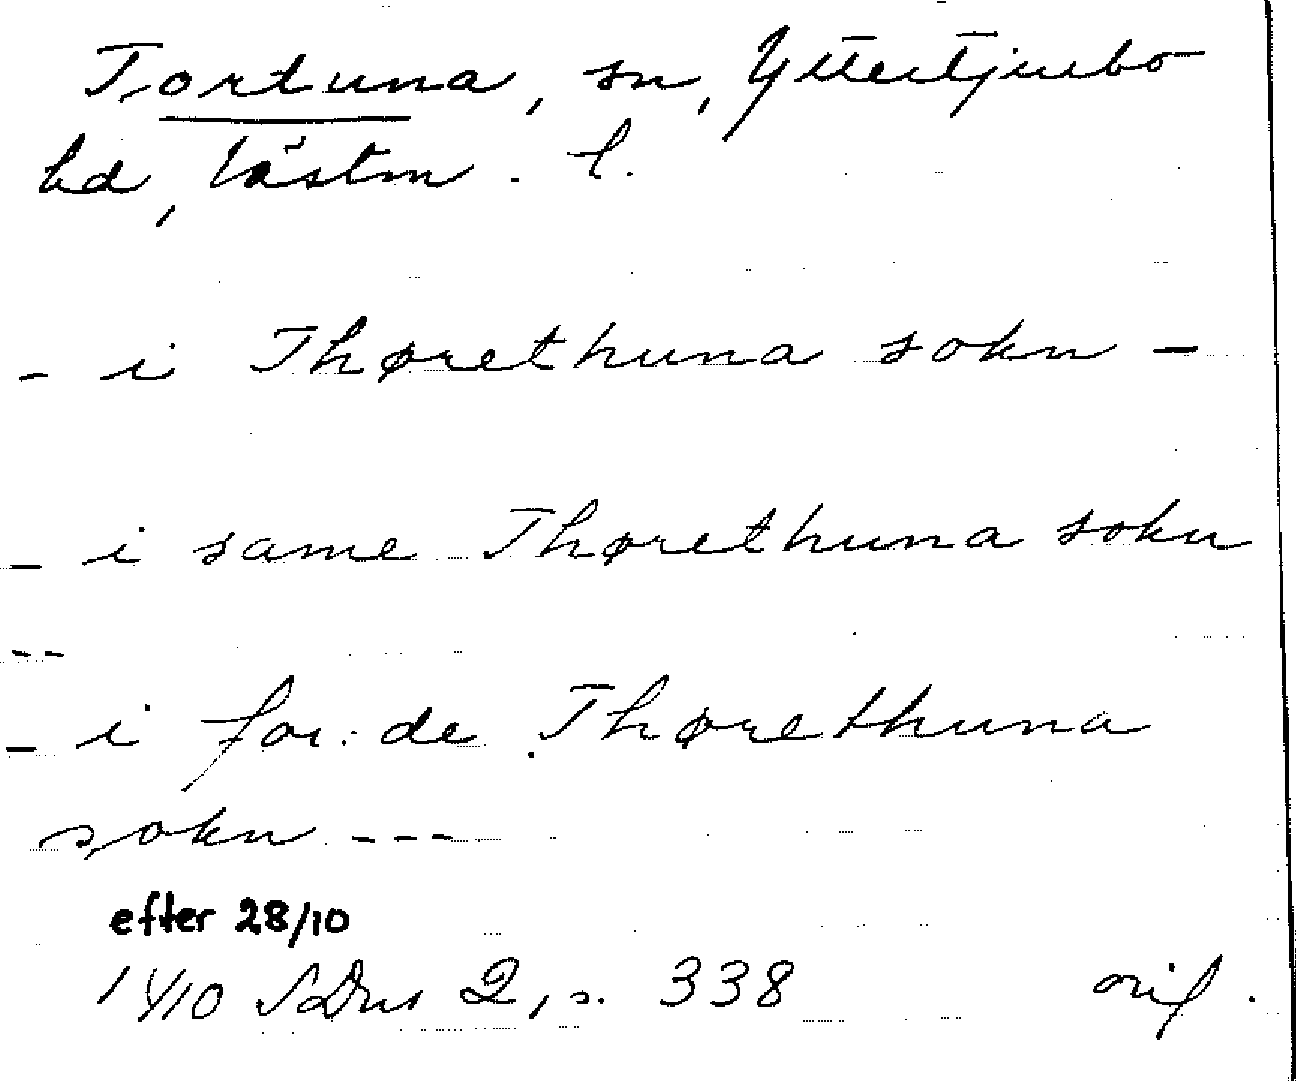 Tortuna, sn, Yttertjurbo
hd, Västm. l.
- i Thørethuna sokn -
- i same Thørethuna sokn
--
- i for:de Thørethuna
sokn ---
efter 28/10
1410 SDns 2, s. 338 orig.